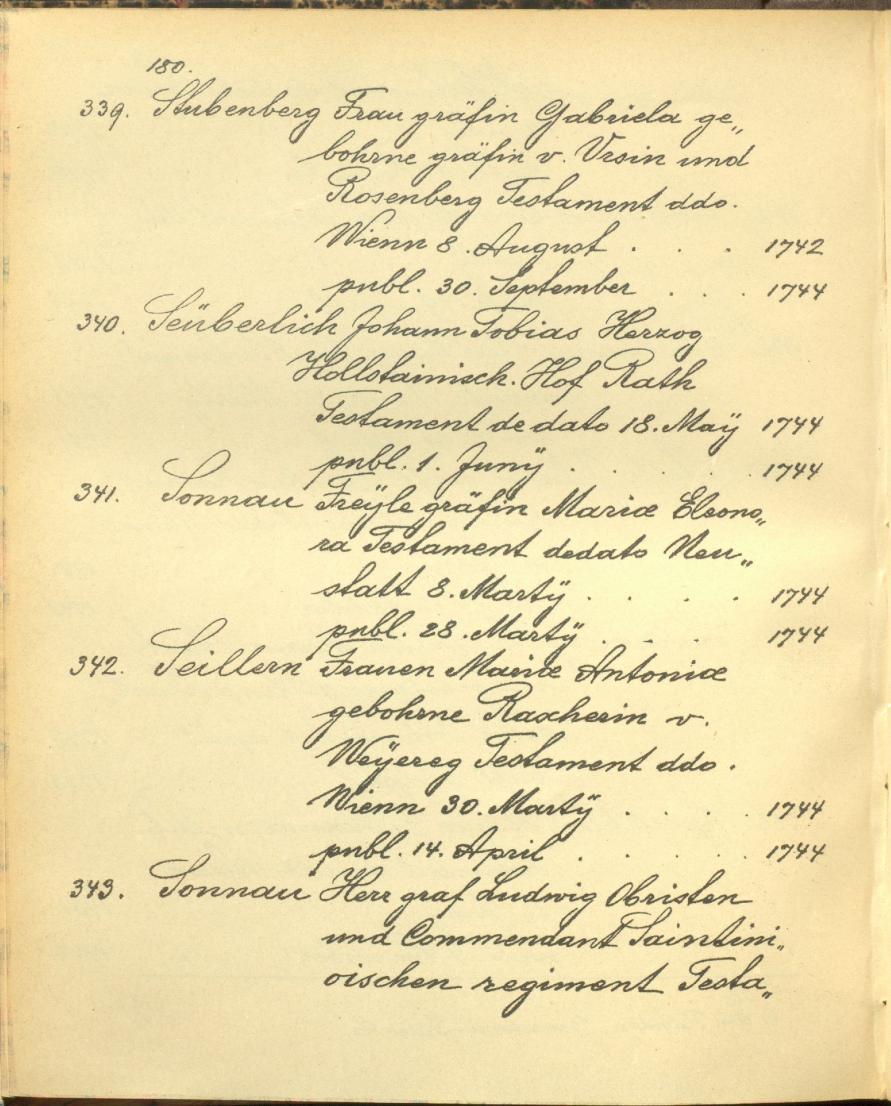 180.
339. Stubenberg Frau gräfin Gabriela ge„
bohrne gräfin v. Vrsin und
Rosenberg Testament ddo.
Wienn 8. August . . . 1742
publ. 30. September . . . 1744
340. Seüberlich Johann Tobias Herzog
Hollstainisch. Hof Rath
Testament de dato 18. Maÿ 1744
publ. 1. Junÿ . . . . 1744
341. Sonnau Freÿle gräfin Mariæ Eleono„
ra Testament dedato Neu„
statt 8. Martÿ . . . . 1744
publ. 28. Martÿ . . . 1744
342. Seillern Frauen Mariæ Antoniæ
gebohrne Rascherin v.
Weÿereg Testament ddo.
Wienn 30. Martÿ . . . . 1744
publ. 14. April . . . . . 1744
343. Sonnau Herr graf Ludwig Obristen
und Commendant Saintini„
oischen regiment Testa„